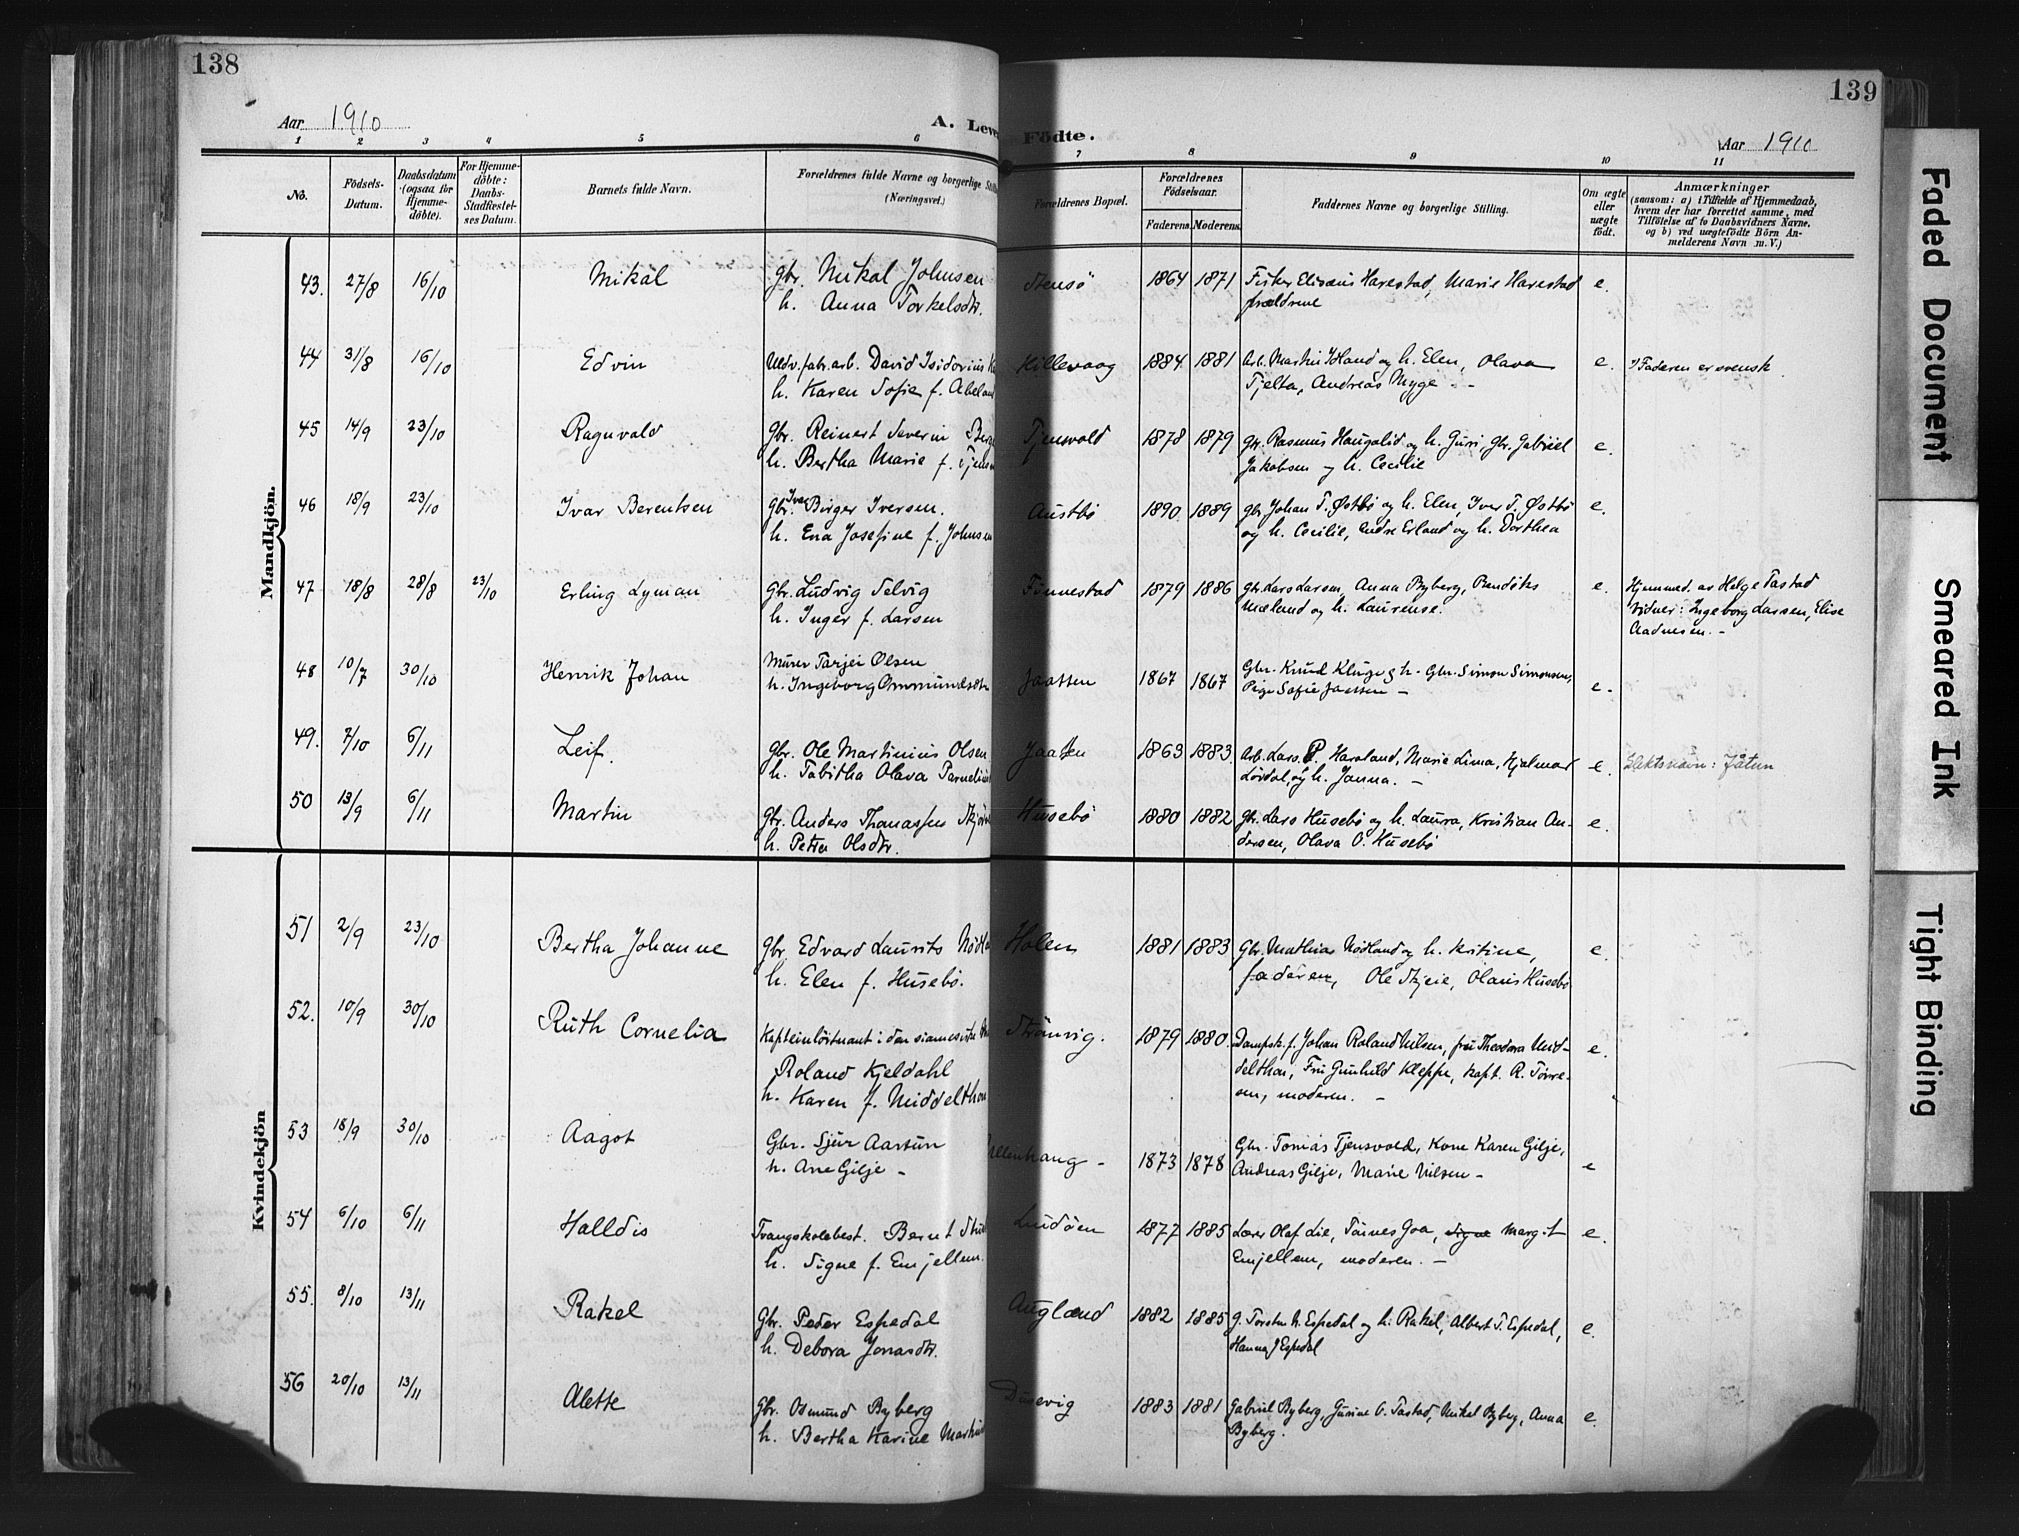 138
Aar 1910
A. Leve
1 2 3 4 5 6
No.
Födsels-
Datum.
Daabsdatum
(ogsaa for
Hjemme-
döbte).
For Hjemme-
döbte:
Daabs-
Stadfæstel-
ses Datum.
Barnets fulde Navn.
Forældrenes fulde Navne og borgerlige Still
(Næringsvei.)
Mandkjön.
43. 27/8 16/10 Mikal gbr. Mikal Johnsen
h. Anna Torkelsdtr.
44 31/8 16/10 Edvin Uldv. fabr. arb. David Isidorius
h. Karen Sofie f. Abeland
45 14/9 23/10 Ragnvald gbr. Reinert Severin
h. Bertha Marie f.
46 18/9 23/10 Ivar Berentsen Gbr. Ivar Birger Iversen.
h. Ena Josefine f. Johnsen
47 18/8 28/8 23/10 Erling Lyman Gbr. Ludvig Selvig
h. Inger f. Larsen
48 10/7 30/10 Henrik Johan Murer Tarjei Olsen
h. Ingeborg Ommundsdtr
49. 7/10 6/11 Leif. gbr. Ole Martinius Olsen
h. Tabitha Olava
50 13/9 6/11 Martin gbr. Anders Thomassen
h. Petra Olsdtr.
Kvindekjön
51 2/9 23/10 Bertha Johanne gbr. Edvard Laurits Nödla
h. Elen f. Husebö.
52. 10/9 30/10 Ruth Cornelia Kapteinlöitnant i den siamesiske
Roland Kjeldahl
h. Karen f. Middelthon
53 18/9 30/10 Aagot Gbr. Sjur Aartun
h. Ane Gilje -
54 6/10 6/11 Halldis Tvangskolebest. Bernt
h. Signe f. Emjellem.
55. 8/10 13/11 Rakel Gbr. Peder Espedal
h. Debora Jonasdtr.
56 20/10 13/11 Alette Gbr. Osmund Byberg
h. Bertha Karine
139
Födte.
Aar 1910
7 8 9 10 11
Forældrenes Bopæl.
Forældrenes
Födselsaar.
Faderens. Moderens.
Faddernes Navne og borgerlige Stilling.
Om ægte
eller
uægte
födt.
Anmærkninger
(saasom: a) i Tilfælde af Hjemmedaab,
hvem der har forrettet samme, med
Tilföielse af to Daabsvidners Navne,
og b) ved uægtefödte Börn An-
melderens Navn m. V.)
Stensö 1864 1871 Fisker Elisæus Harestad, Marie Harestad e.
forældrene
Hillevaag 1884 1881 Arb. Martin Idland og h. Elen, Olava e. Faderen er svensk.
Tjelta, Andreas Myge -
Tjensvold 1878 1879 gbr. Rasmus Haugalid og h. Guri, gbr. Gabriel e.
Jakobsen og h. Cecilie
Austbö 1890 1889 gbr. Johan T. Østbö og h. Elen, Iver T. Østbö e.
og h. Cecilie, Endre Erland og h. Dorthea
Finnestad 1879 1886 gbr. Lars Larsen, Anna Byberg, Bendiks e. Hjemmed. av Helge Tastad
Mæland og h. Laurense. Vidner: Ingeborg Larsen, Elise
Aadnesen. -
Jaatten 1867 1867 Gbr. Knud Kluge & h. - Gbr. Simon Simonsen, e.
Pige Sofie Jaatten -
Jaatten 1863 1883. Arb. Lars P. Haraland, Marie Lima, Hjalmar e. Slektsnavn: Jåtun
Lördal, og h. Janna. -
Husebö 1880 1882 Gbr. Lars Husebö og h. Laura, Kristian An- e.
dersen, Olava O. Husebö
Holen 1881 1883 Gbr. Mathias Nödland og h. Kristine, e.
faderen, Ole Skjeie, Olaus Husebö
Strömvig. 1879 1880. Dampsk.f. Johan Roland Nilsen, fru Theodora Mid- e.
delthon, Fru Gunhild Kleppe, kapt. R.
moderen. -
1873 1878 Gbr. Tomas Tjensvold, Kone Karen Gilje, e
Andreas Gilje, Marie Nilsen -
Lindöen 1877 1885 Lærer Olaf Lie, Goa, Signe Margit e.
Emjellem, moderen. -
Auglænd 1882 1885 g. Torsten Espedal og h. Rakel, Albert T. Espedal, e.
Hanna J Espedal
Dusevig 1883 1881 Gabriel Byberg, Gurine O. Tastad, Mikal Byberg, Anna e.
Byberg.
Faded Document
Smeared Ink
Tight Binding